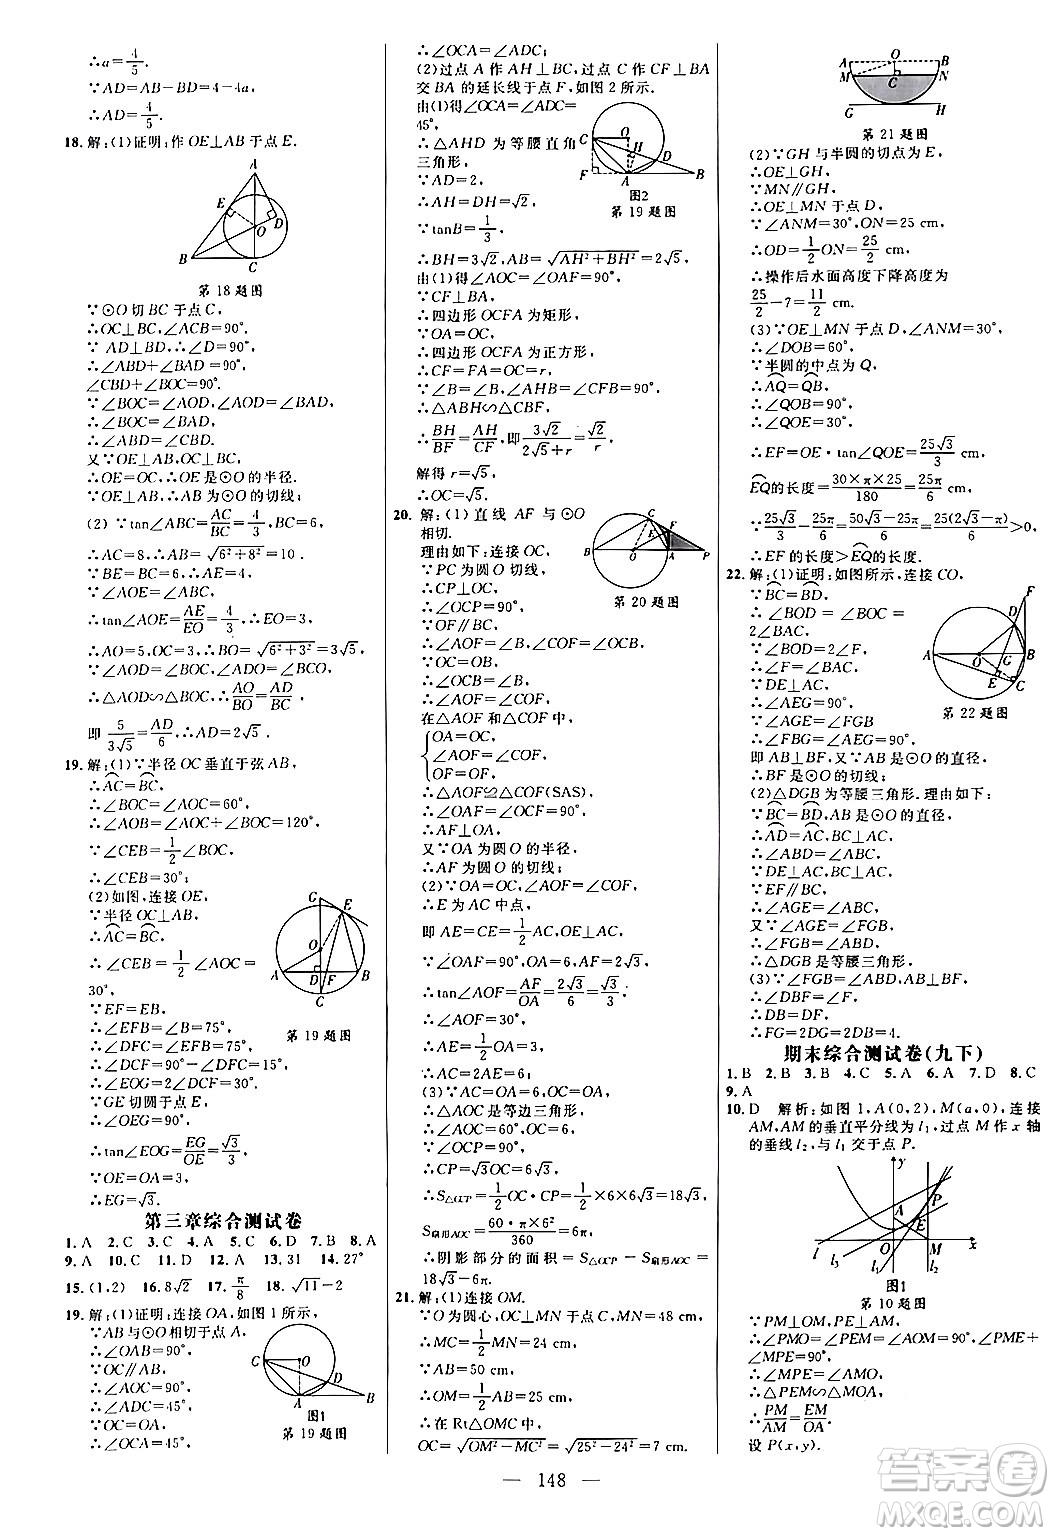 ∴a=4/5.
∵AD=AB-BD=4-4a,
∴AD=4/5.
18.解:(1)证明:作OE⊥AB于点E.
A
E
D
O
B
C
第18题图
∵⊙O切BC于点C,
∴OC⊥BC,∠ACB=90°.
∵AD⊥BD,∴∠D=90°.
∴∠ABD+∠BAD=90°,
∠CBD+∠BOC=90°.
∵∠BOC=∠AOD,∠AOD=∠BAD,
∴∠BOC=∠BAD.
∴∠ABD=∠CBD.
又∵OE⊥AB,OC⊥BC,
∴OE=OC,OC是⊙O的半径.
∵OE⊥AB,∴AB为⊙O的切线;
(2)∵tan∠ABC=AC/BC=4/3,BC=6,
∴AC=8.∴AB=√(6²+8²)=10.
∵BE=BC=6,∴AE=4.
∵∠AOE=∠ABC,
∴tan∠AOE=AE/EO=4/3.∴EO=3.
∴AO=5,OC=3,∴BO=√(6²+3²)=3√5.
∵∠AOD=∠BOC,∠ADO=∠BCO,
∴△AOD∽△BOC,∴AO/BO=AD/BC,
即5/(3√5)=AD/6,∴AD=2√5.
19.解:(1)∵半径OC垂直于弦AB,
∴AC=BC.
∴∠BOC=∠AOC=60°,
∴∠AOB=∠AOC+∠BOC=120°.
∵∠CEB=1/2∠BOC,
∴∠CEB=30°;
(2)如图,连接OE,
∵半径OC⊥AB,
∴AC=BC.
∴∠CEB=1/2∠AOC=
30°,
∵EF=EB,
∴∠EFB=∠B=75°,
∴∠DFC=∠EFB=75°,
∴∠C=90°-∠DFC=15°,
∴∠EOG=2∠C=30°,
∵GE切圆于点E,
∴∠OEG=90°,
∴tan∠EOG=EG/OE=√3/3,
∵OE=OA=3,
∴EG=√3.
G
E
O
A
D F
B
C
第19题图
第三章综合测试卷
1.A 2.C 3.C 4.A 5.C 6.D 7.B 8.A
9.A 10.C 11.D 12.A 13.31 14.27°
15.(1,2) 16.8√2 17.π/8 18.√11-2
19.解:(1)证明:连接OA,如图1所示,
∵AB与⊙O相切于点A,
∴∠OAB=90°.
∵OC∥AB,
∴∠AOC=90°,
∴∠ADC=45°.
∵OC=OA,
∴∠OCA=45°,
C
O
D
A
B
图1
第19题图
∴∠OCA=∠ADC;
(2)过点A作AH⊥BC,过点C作CF⊥BA
交BA的延长线于点F,如图2所示.
由(1)得∠OCA=∠ADC=
45°,
∴△AHD为等腰直角
三角形,
∵AD=2,
∴AH=DH=√2,
∵tanB=1/3,
C
O
H
D
F
A
B
图2
第19题图
∴BH=3√2,AB=√(AH²+BH²)=2√5,
由(1)得∠AOC=∠OAF=90°,
∵CF⊥BA,
∴四边形OCFA为矩形,
∵OA=OC,
∴四边形OCFA为正方形,
∴CF=FA=OC=r,
∵∠B=∠B,∠AHB=∠CFB=90°,
∴△ABH∽△CBF,
∴BH/BF=AH/CF,即3√2/(2√5+r)=√2/r,
解得r=√5,
∴OC=√5.
20.解:(1)直线AF与⊙O
相切.
理由如下:连接OC,
∵PC为圆O切线,
∴CP⊥OC,
∴∠OCP=90°,
∵OF∥BC,
∴∠AOF=∠B,∠COF=∠OCB,
∵OC=OB,
∴∠OCB=∠B,
∴∠AOF=∠COF,
在△AOF和△COF中,
OA=OC,
∠AOF=∠COF,
OF=OF,
∴△AOF≌△COF(SAS),
∴∠OAF=∠OCF=90°,
∴AF⊥OA,
又∵OA为圆O的半径,
∴AF为圆O的切线;
C
F
E
B
O
A
P
第20题图
(2)∵△AOF≌△COF,∴∠AOF=∠COF,
∵OA=OC,
∴E为AC中点,
即AE=CE=1/2AC,OE⊥AC,
∵∠OAF=90°,OA=6,AF=2√3,
∴tan∠AOF=AF/OA=2√3/6=√3/3,
∴∠AOF=30°,
∴AE=1/2OA=3,
∴AC=2AE=6;
(3)∵AC=OA=6,OC=OA=6,
∴△AOC是等边三角形,
∴∠AOC=60°,OC=6,
∵∠OCP=90°,
∴CP=√3OC=6√3,
∴S△OCP=1/2OC·CP=1/2×6×6√3=18√3,
S扇形AOC=60·π×6²/360=6π,
∴阴影部分的面积=S△OCP-S扇形AOC=
18√3-6π.
21.解:(1)连接OM.
∵O为圆心,OC⊥MN于点C,MN=48 cm,
∴MC=1/2MN=24 cm,
∵AB=50 cm,
∴OM=1/2AB=25 cm,
∴在Rt△OMC中,
OC=√(OM²-MC²)=√(25²-24²)=7 cm.
A
O
B
M
N
C
G
H
第21题图
(2)∵GH与半圆的切点为E,
∴OE⊥GH,
∵MN∥GH,
∴OE⊥MN于点D,
∵∠ANM=30°,ON=25 cm,
∴OD=1/2ON=25/2 cm,
∴操作后水面高度下降高度为
25/2-7=11/2 cm.
(3)∵OE⊥MN于点D,∠ANM=30°,
∴∠DOB=60°,
∵半圆的中点为Q,
∴AQ=QB,
∴∠QOB=90°,
∴∠QOE=30°,
∴EF=OE·tan∠QOE=25√3/3 cm,
EQ的长度=30×π×25/180=25π/6 cm,
∵25√3/3-25π/6=(50√3-25π)/6=25(2√3-π)/6>0,
∴EF的长度>EQ的长度.
22.解:(1)证明:如图所示,连接CO,
∵BC=BD,
∴∠BOD=∠BOC=
2∠BAC,
∵∠BOD=2∠F,
∴∠F=∠BAC,
∵DE⊥AC,
∴∠AEG=90°,
∵∠AGE=∠FGB
∴∠FBG=∠AEG=90°,
F
D
A
O
G
B
E
C
第22题图
即AB⊥BF,又∵AB是⊙O的直径,
∴BF是⊙O的切线;
(2)△DGB为等腰三角形.理由如下:
∵BC=BD,AB为⊙O的直径,
∴AD=AC,BC⊥AC,
∴∠ABD=∠ABC,
∵DE⊥AC,
∴EF∥BC,
∴∠AGE=∠ABC,
又∵∠AGE=∠FGB,
∴∠FGB=∠ABD,
∴△DGB是等腰三角形,
(3)∵∠FGB=∠ABD,AB⊥BF,
∴∠DBF=∠F,
∴DB=DF,
∴FG=2DG=2DB=4.
期末综合测试卷(九下)
1.B 2.B 3.B 4.C 5.A 6.A 7.D 8.C
9.A
10.D 解析:如图1,A(0,2),M(a,0),连接
AM,AM的垂直平分线为l₁,过点M作x轴
的垂线l₂,与l₁交于点P.
y
P
A
E
l
O
M
x
l₁
l₂
图1
第10题图
∵PM⊥OM,PE⊥AM,
∴∠PMO=∠PEM=∠AOM=90°,∠PME+
∠MPE=90°.
∴∠MPE=∠AMO.
∴△PEM∽△MOA,
∴PM/AM=EM/OA.
设P(x,y).
148
答案圈
MXQE.COM